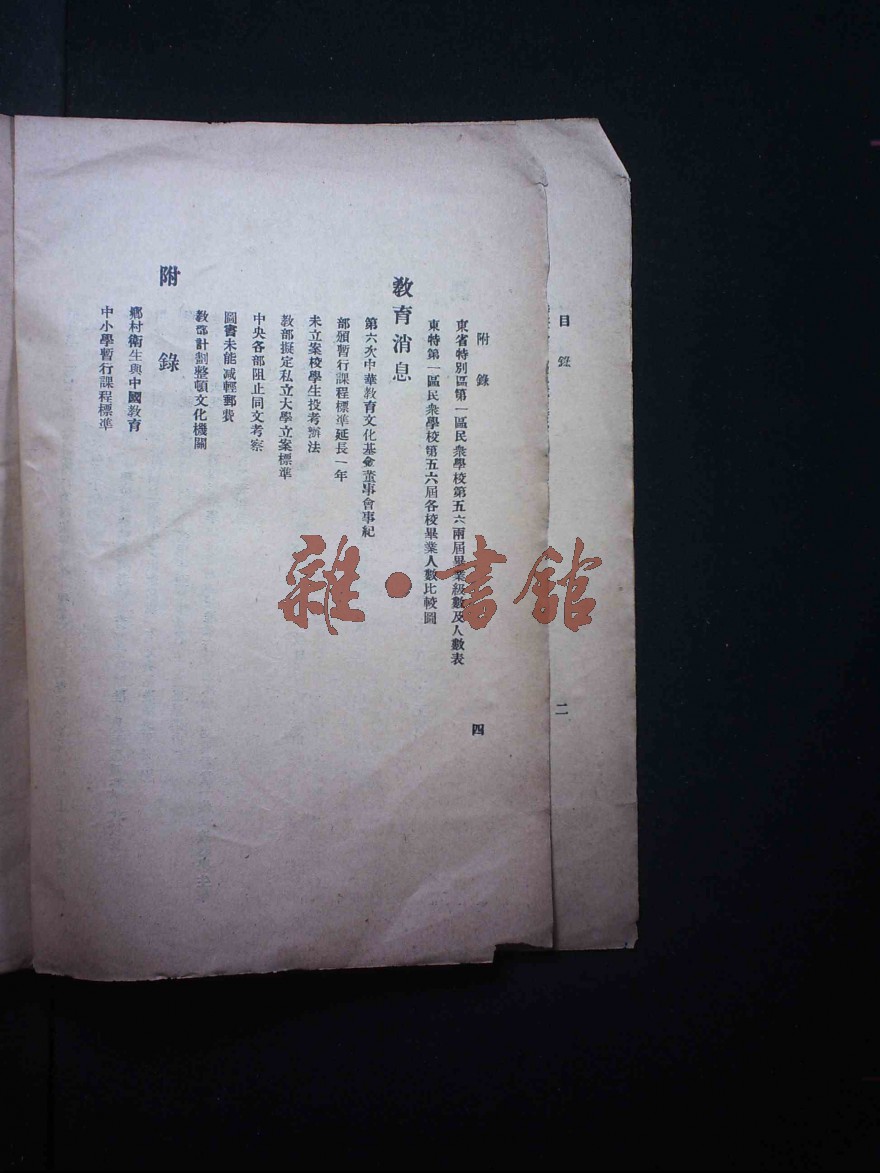 目錄
二
附錄
四
東省特別區第一區民衆學校第五六兩屆畢業級數及人數表
東特第一區民衆學校第五六屆各校畢業人數比較圖
教育消息
第六次中華教育文化基金董事會事紀
部頒暫行課程標準延長一年
未立案校學生投考辦法
教部擬定私立大學立案標準
中央各部阻止同文考察
圖書未能減輕郵費
教部計劃整頓文化機關
附錄
鄉村衛生與中國教育
中小學暫行課程標準
雜·書館